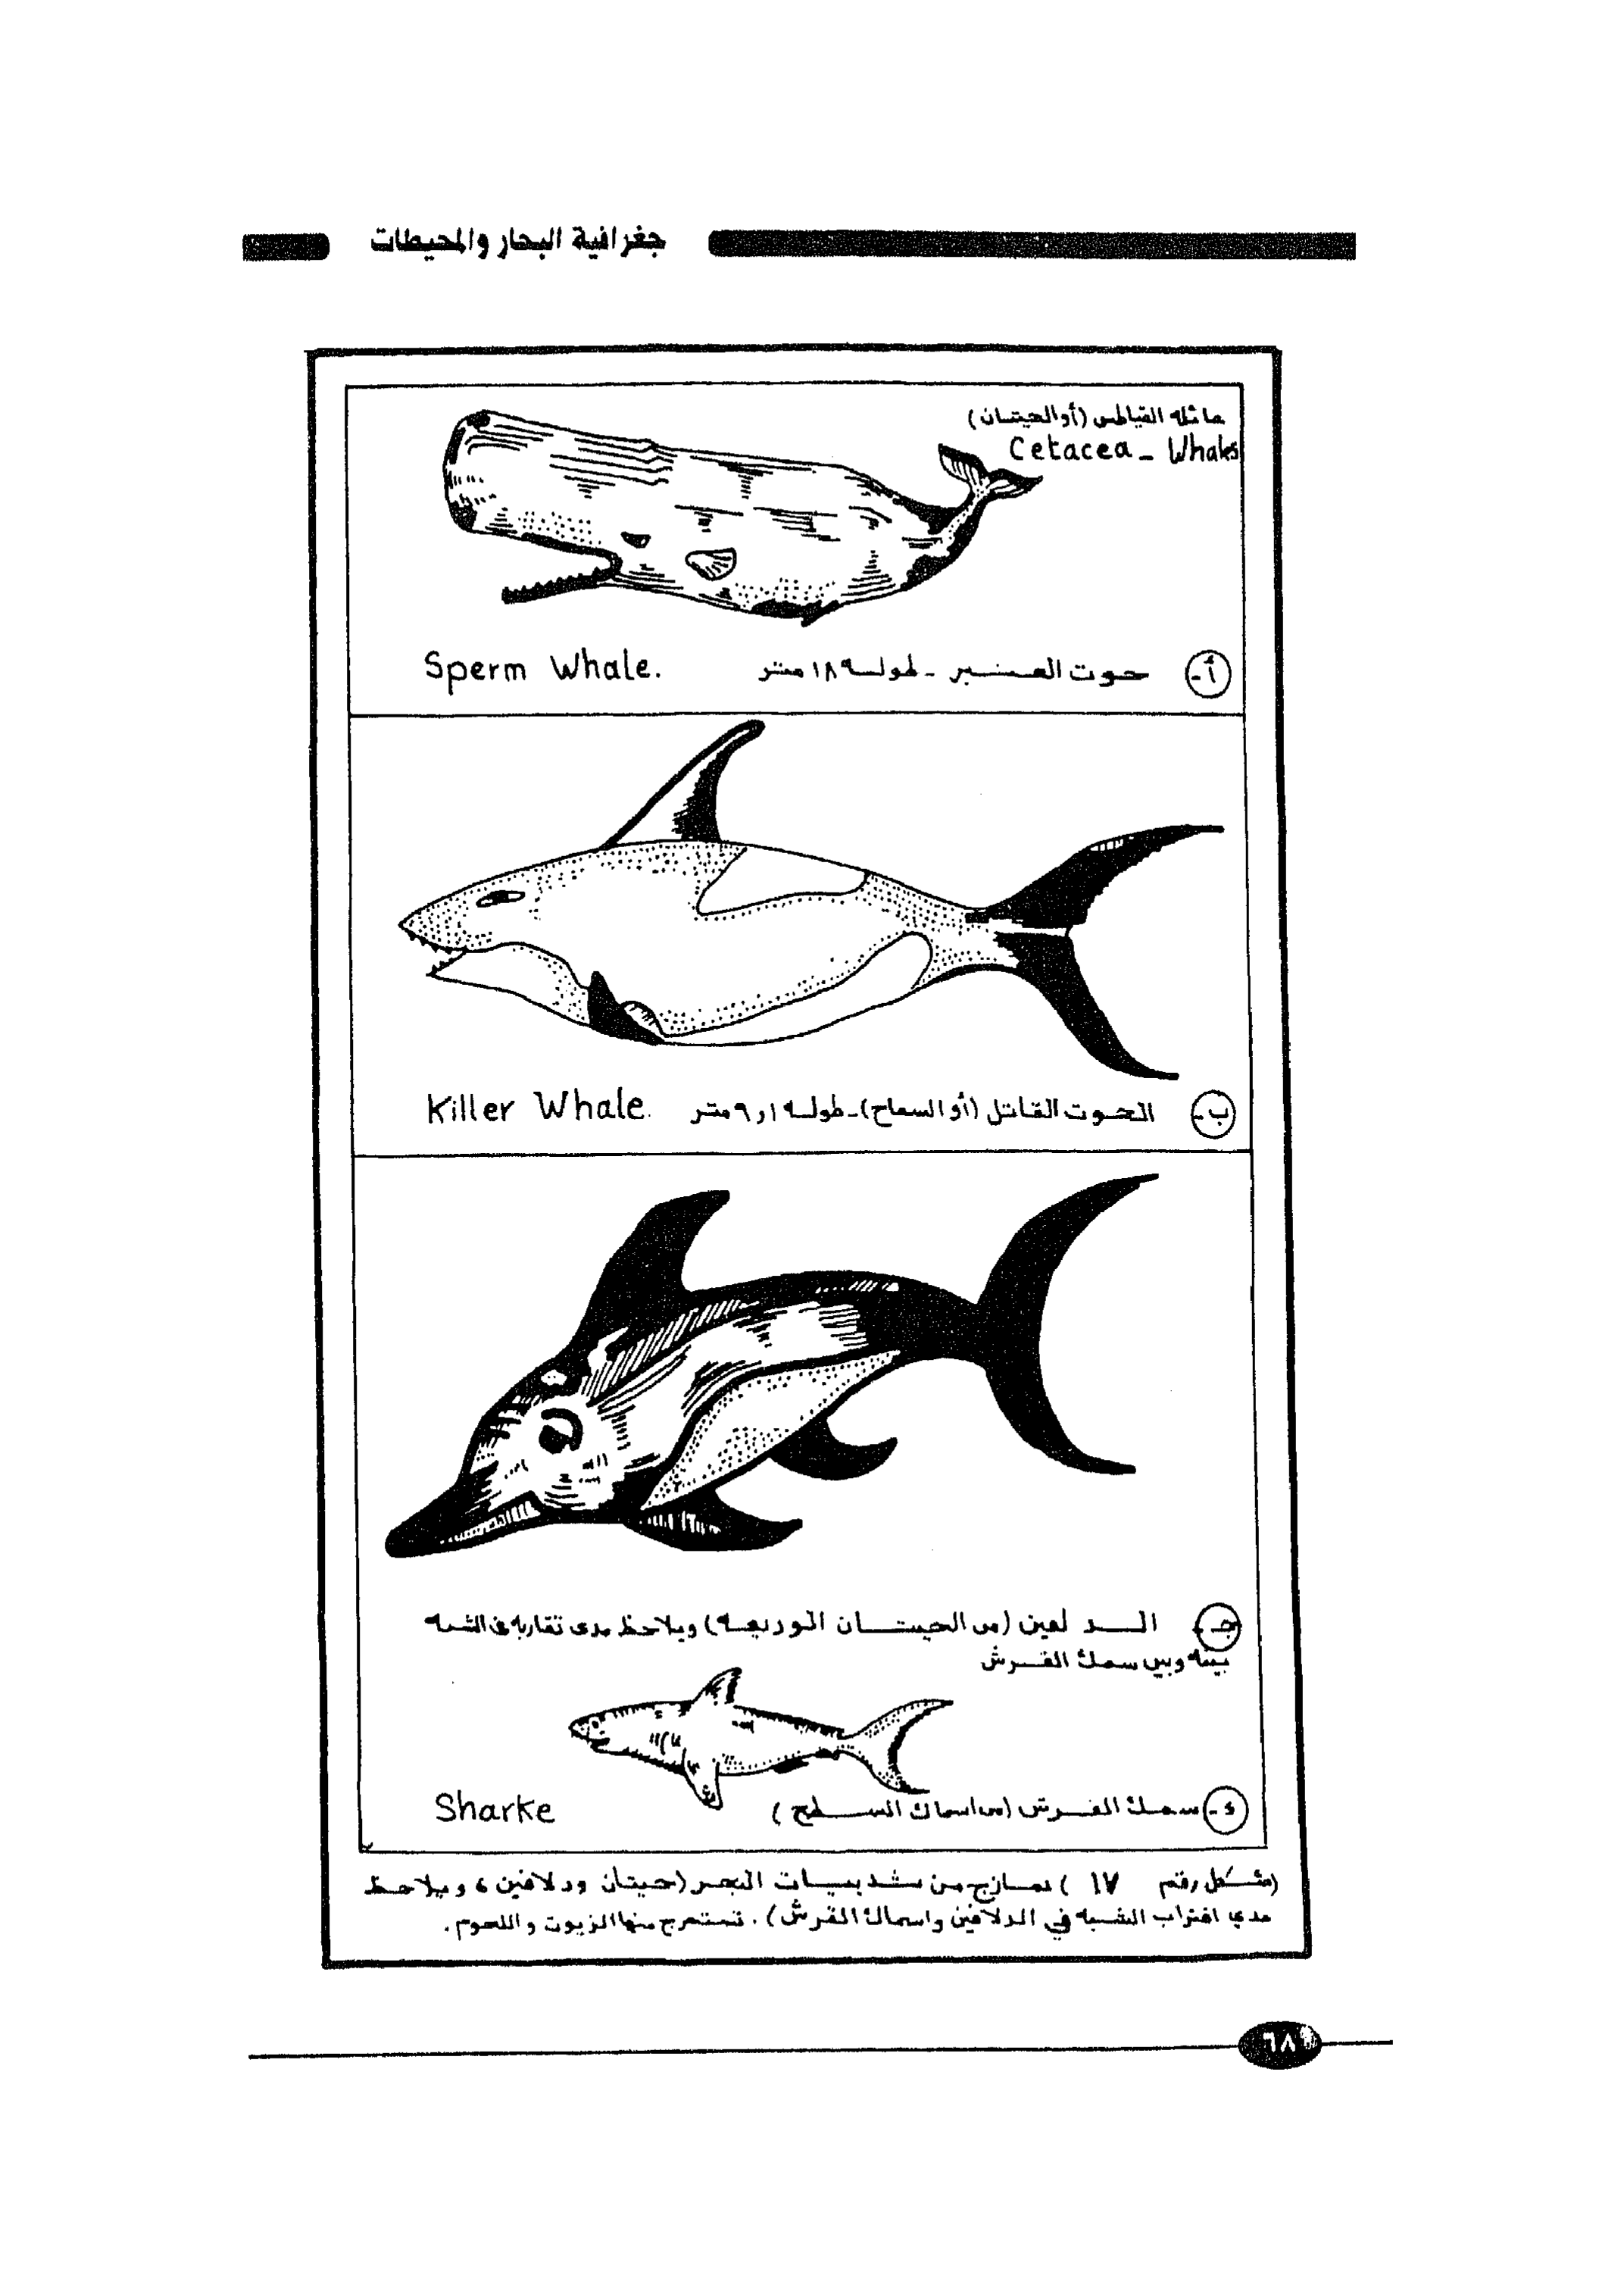 جغرافية البحار والمحيطات
عائله القياطس (أو الحيتان)
Cetacea - Whales
أ- حوت العنبر - طوله ١٨ متر
Sperm Whale.
ب- الحوت القاتل (أو السماح) - طوله ٩,١ متر
Killer Whale.
جـ- الدلفين (من الحيتان الوديعة) ويلاحظ مدى تقاربه فى الشبه
بينه وبين سمك القرش
د- سمك القرش (من اسماك السطح)
Sharke
(شكل رقم ١٧) نمازج من ثدييات البحر (حيتان ودلافين، ويلاحظ
مدي اقتراب الشبه في الدلافين واسماك القرش). تستخرج منها الزيوت واللحوم.
٦٨